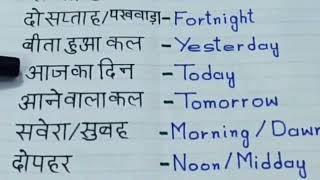 दो सप्ताह/पखवाड़ा - Fortnight
बीता हुआ कल - Yesterday
आज का दिन - Today
आने वाला कल - Tomorrow
सवेरा/सुबह - Morning/Dawn
दोपहर - Noon/Midday